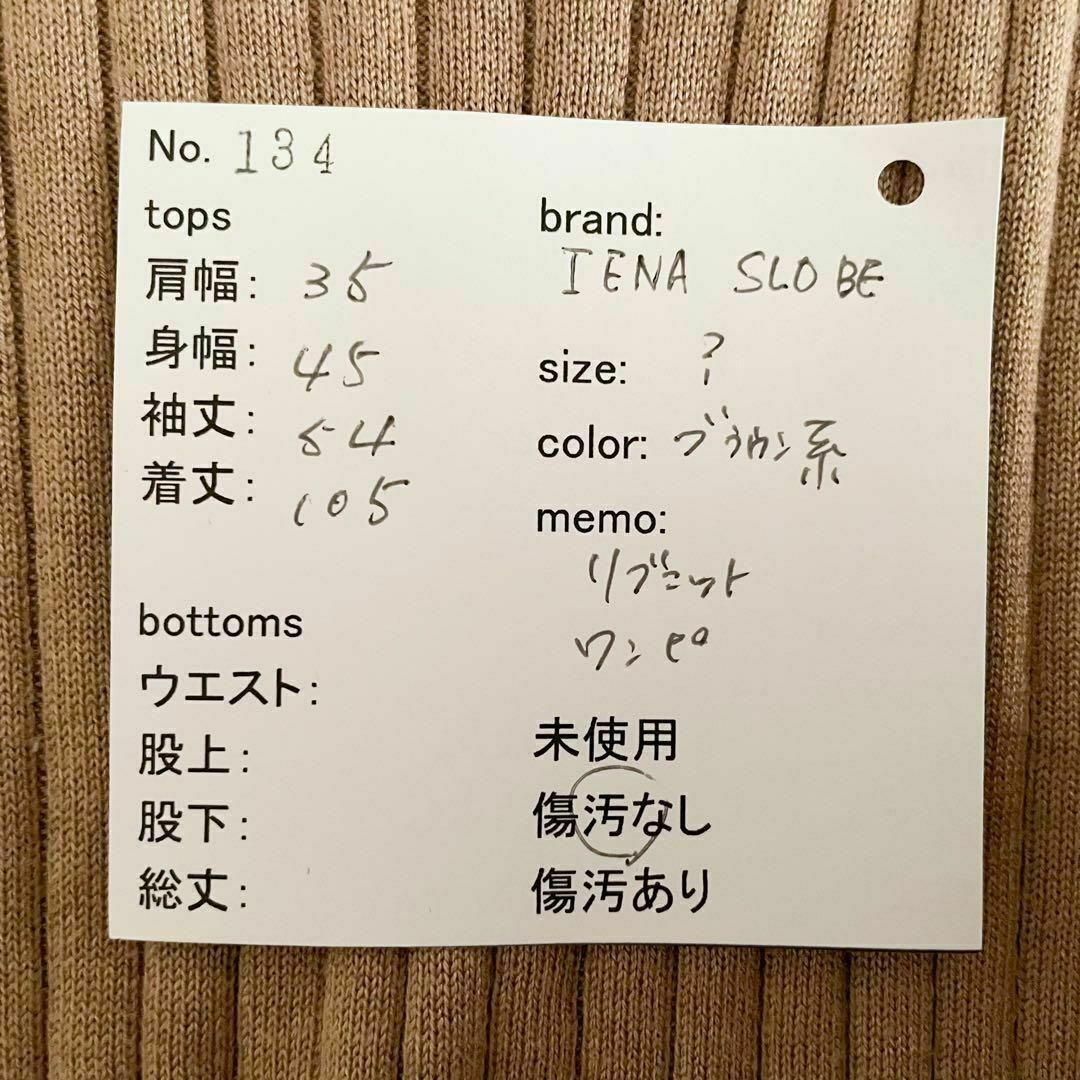 No. 134
tops
肩幅: 35
身幅: 45
袖丈: 54
着丈: 105
bottoms
ウエスト:
股上:
股下:
総丈:
brand:
IENA SLOBE
size: ?
color: ブラウン系
memo:
リブニット
ワンピ
未使用
傷汚なし
傷汚あり